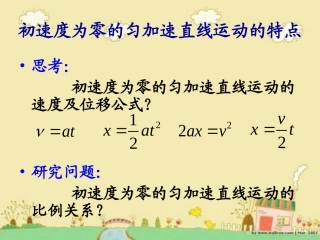 初速度为零的匀加速直线运动的特点
• 思考：
初速度为零的匀加速直线运动的
速度及位移公式？
v at x 1/2 at² 2ax = v² x = v/2 t
• 研究问题：
初速度为零的匀加速直线运动的
比例关系？